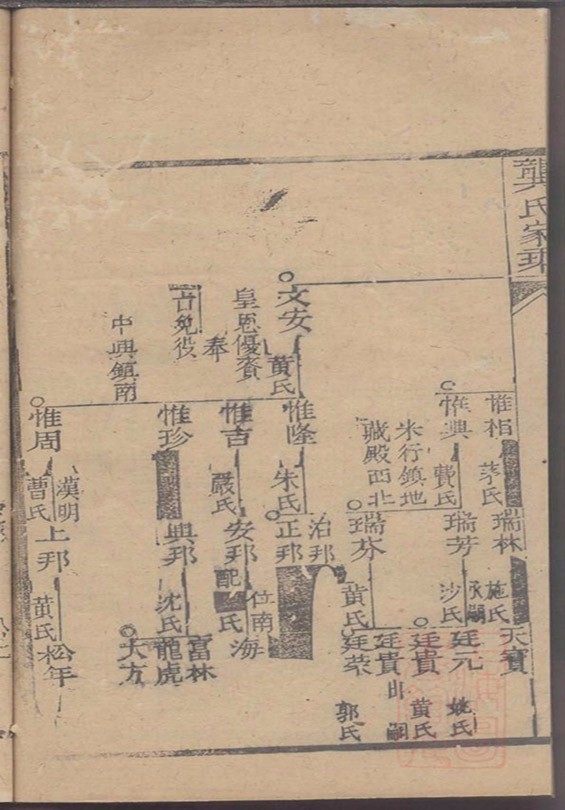 龔氏家乘
惟相
茅氏
瑞林
施氏
天寶
惟興
費氏
瑞芳
承嗣
沙氏
廷元
姚氏
廷貴
黃氏
米行鎮地
藏殿西北
瑞芬
黃氏
廷貴出嗣
廷榮
郭氏
文安
黃氏
皇恩優賚
奉
旨免役
中興鎮南
惟隆
朱氏
治邦
正邦
惟吉
嚴氏
安邦
配
氏
位南
海
惟珍
興邦
沈氏
富林
龍虎
大方
惟周
漢明
曹氏
上邦
黃氏
松年